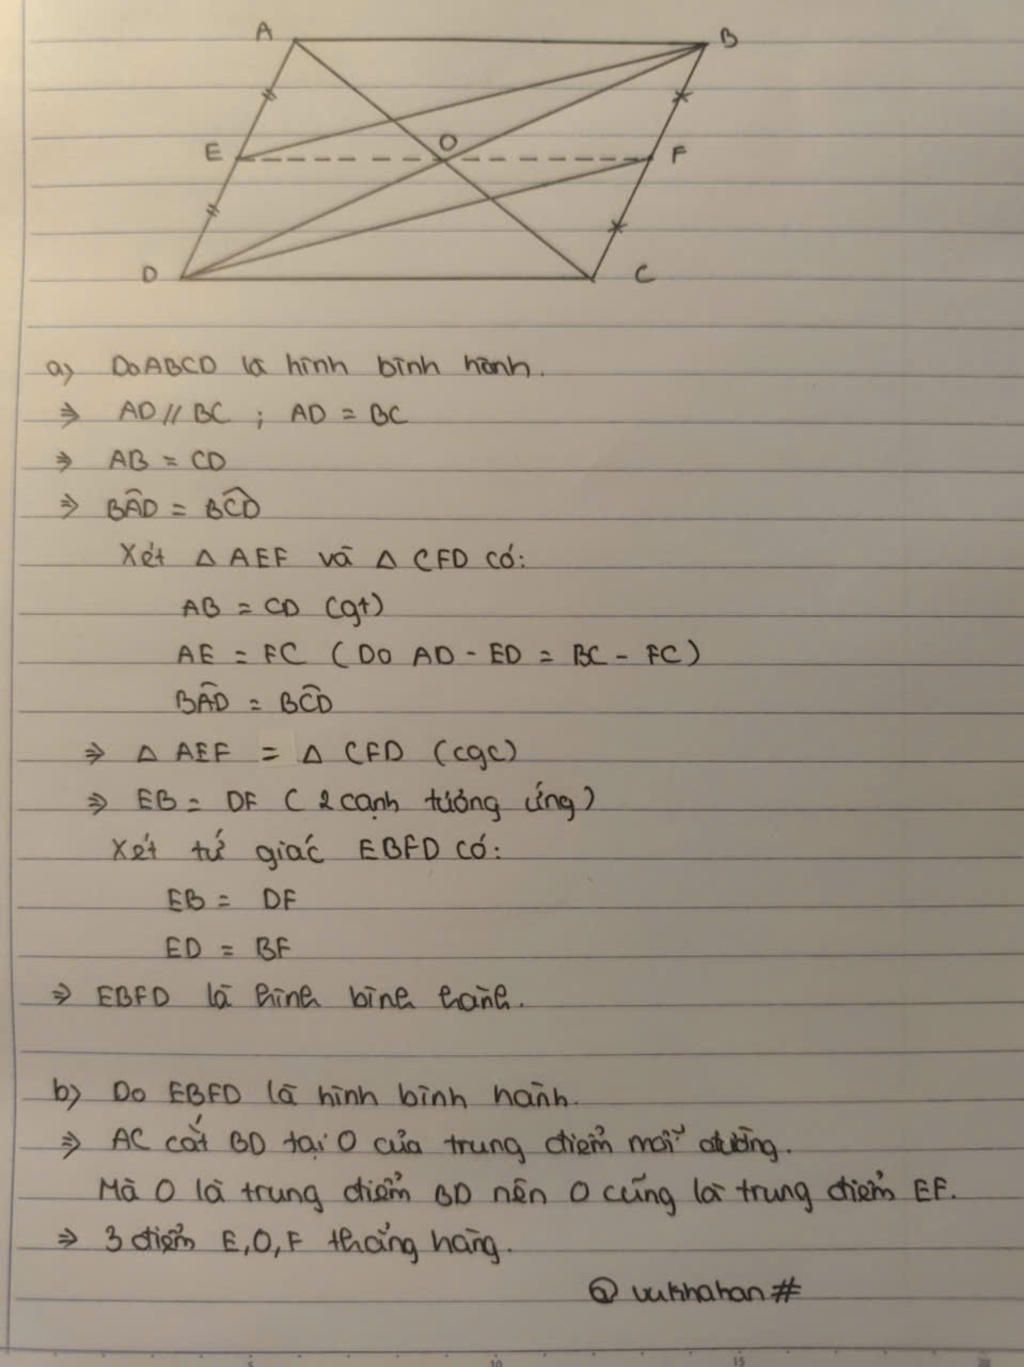 A
B
E
O
F
D
C
a) Do ABCD là hình bình hành.
⇒ AD // BC ; AD = BC
⇒ AB = CD
⇒ BÂD = BĈD
Xét △ AEF và △ CFD có:
AB = CD (gt)
AE = FC (Do AD - ED = BC - FC)
BÂD = BĈD
⇒ △ AEF = △ CFD (cgc)
⇒ EB = DF (2 cạnh tướng ứng)
Xét tứ giác EBFD có:
EB = DF
ED = BF
⇒ EBFD là hình bình hành.
b) Do EBFD là hình bình hành.
⇒ AC cắt BD tại O của trung điểm mỗi đường.
Mà O là trung điểm BD nên O cũng là trung điểm EF.
⇒ 3 điểm E, O, F thẳng hàng.
vukhahan#
5 10 15 20